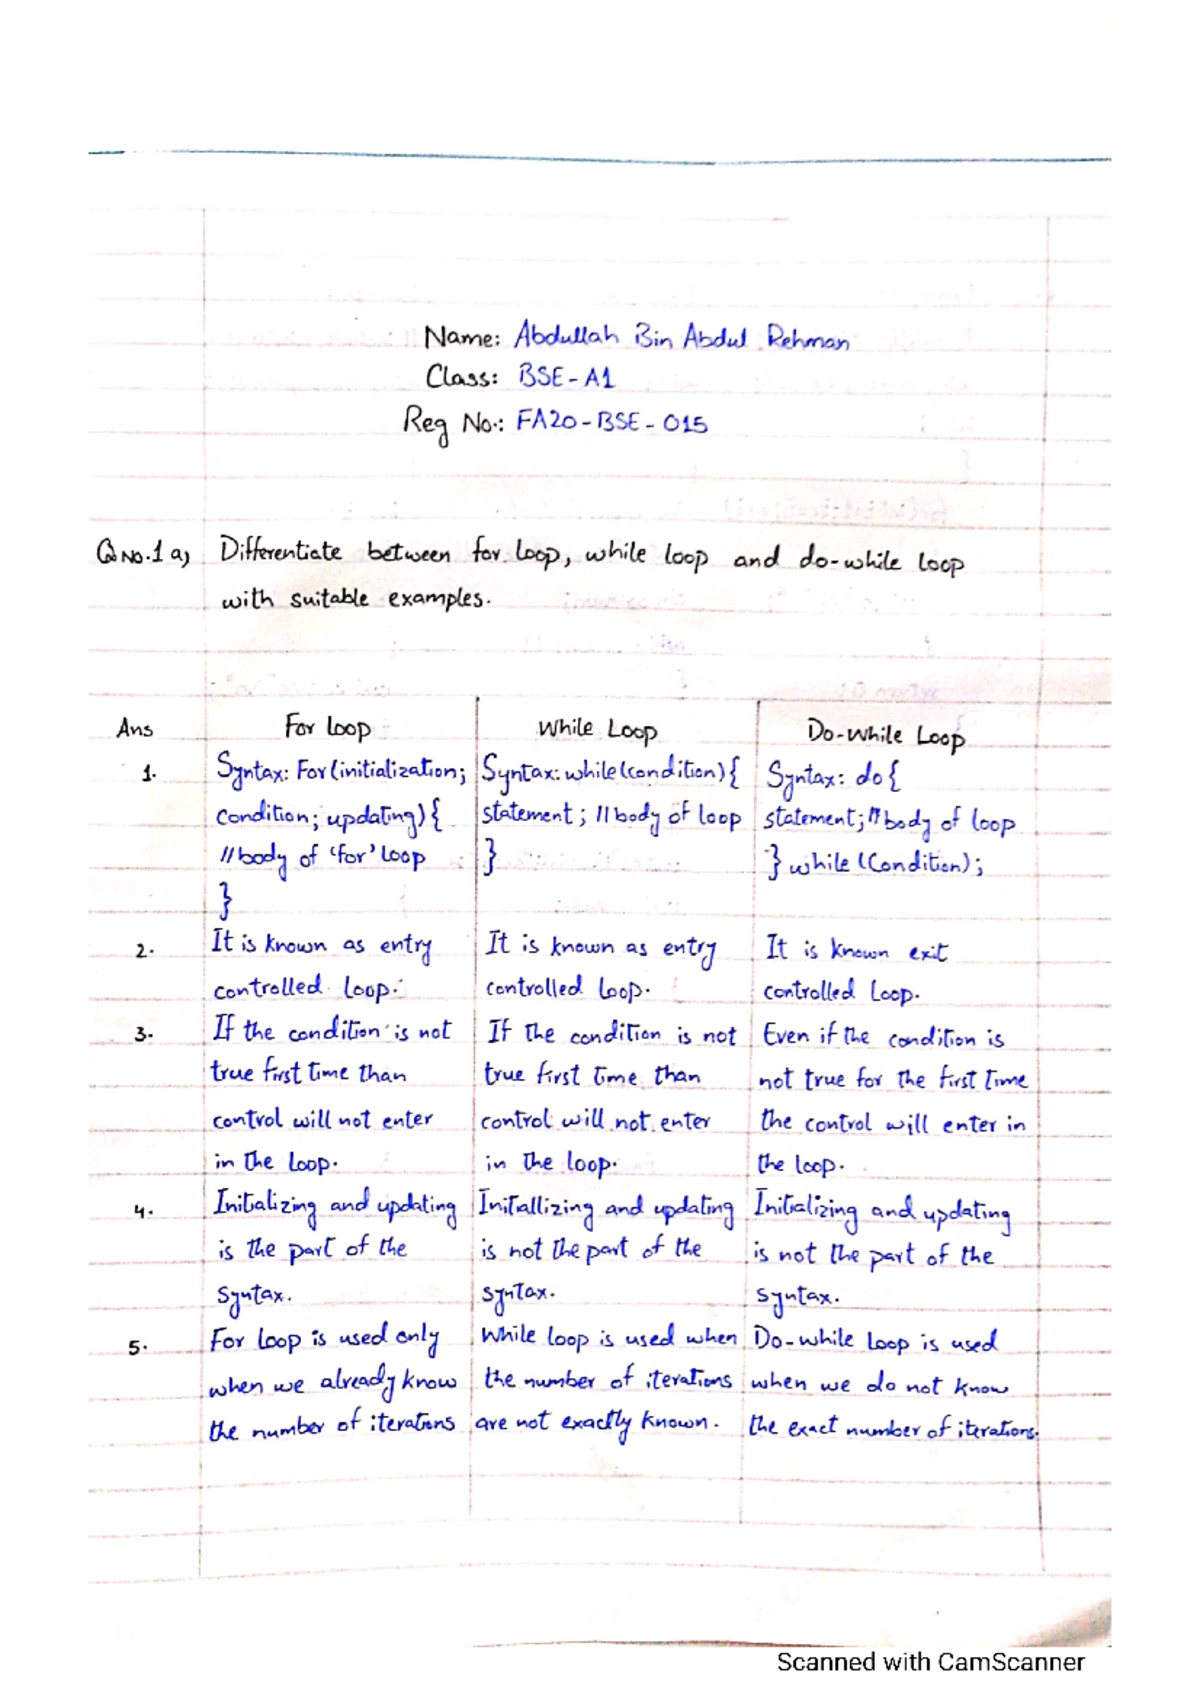 Name: Abdullah Bin Abdul Rehman
Class: BSE-A1
Reg No.: FA20-BSE-015
Q No.1 a) Differentiate between for loop, while loop and do-while loop
with suitable examples.
Ans For loop While Loop Do-While Loop
1. Syntax: For(initialization; Syntax: while(condition){ Syntax: do{
condition; updating){ statement; //body of loop statement; //body of loop
//body of 'for' loop } } while (Condition);
}
2. It is known as entry It is known as entry It is known exit
controlled loop. controlled loop. controlled Loop.
3. If the condition is not If the condition is not Even if the condition is
true first time than true first time than not true for the first time
control will not enter control will not enter the control will enter in
in the loop. in the loop. the loop.
4. Initializing and updating Initiallizing and updating Initializing and updating
is the part of the is not the part of the is not the part of the
Syntax. syntax. syntax.
5. For loop is used only While loop is used when Do-while loop is used
when we already know the number of iterations when we do not know
the number of iterations are not exactly known. the exact number of iterations.
Scanned with CamScanner